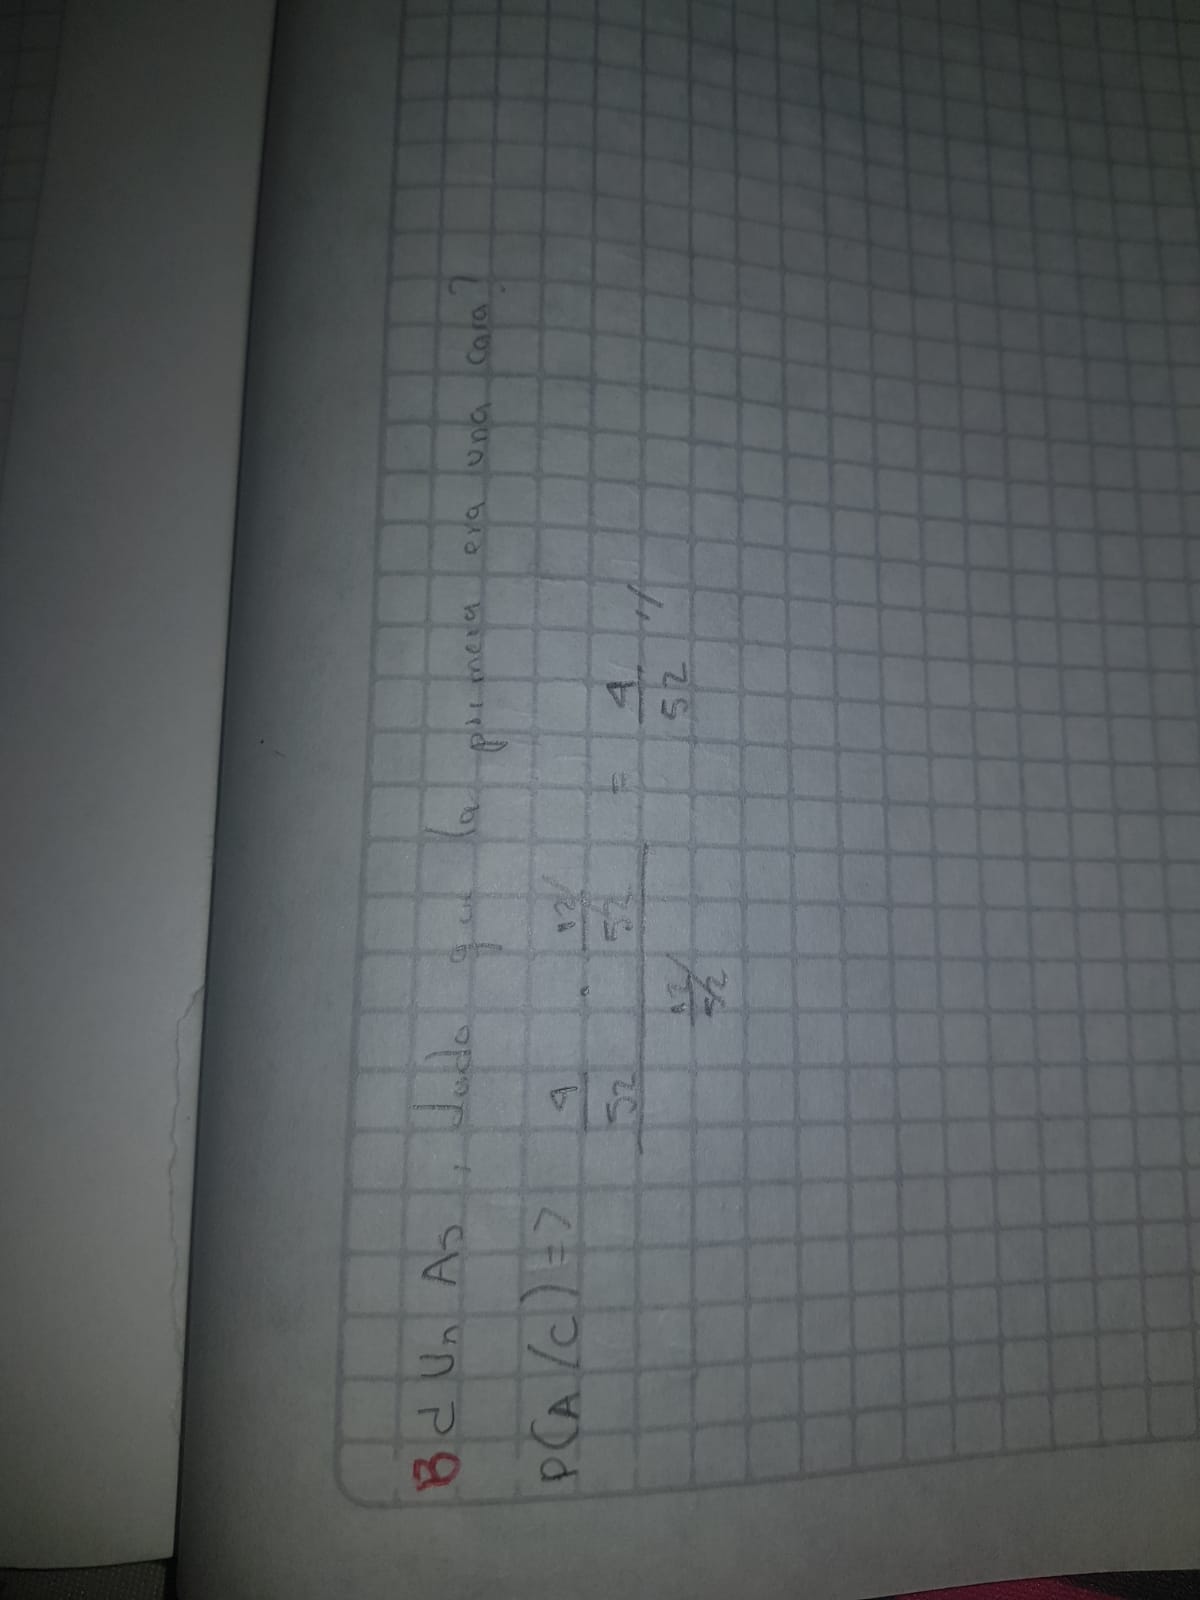 B ¿ Un As, dado que la primera era una cara?
P(A/C) => 4/52 · 12/52 = 4/52 //
12/52